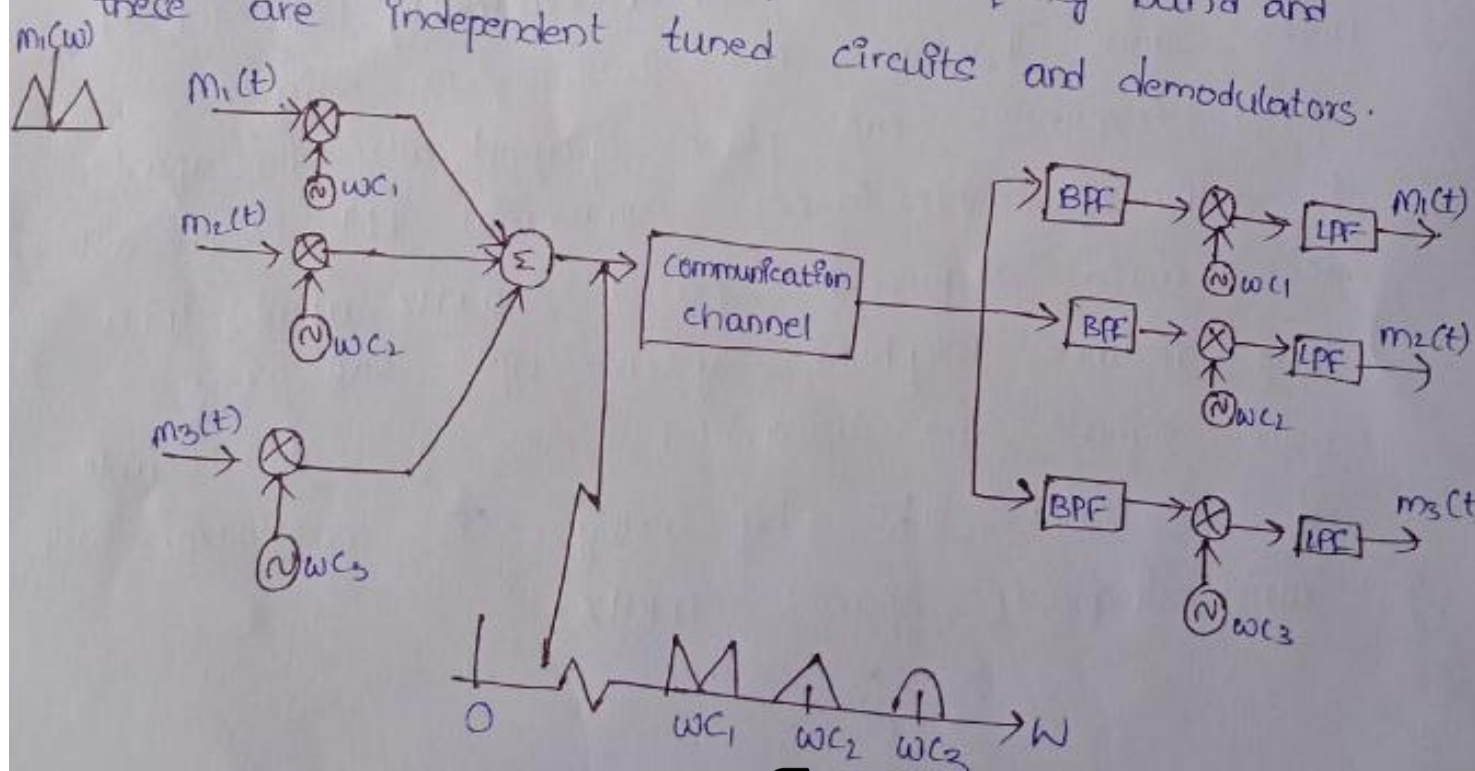 these are independent tuned circuits and demodulators.
band and
m₁(ω)
m₁(t)
ωc₁
m₂(t)
ωc₂
m₃(t)
ωc₃
Σ
communication
channel
BPF
LPF
m₁(t)
ωc₁
BPF
LPF
m₂(t)
ωc₂
BPF
LPF
m₃(t
ωc₃
0
ωc₁
ωc₂
ωc₃
W